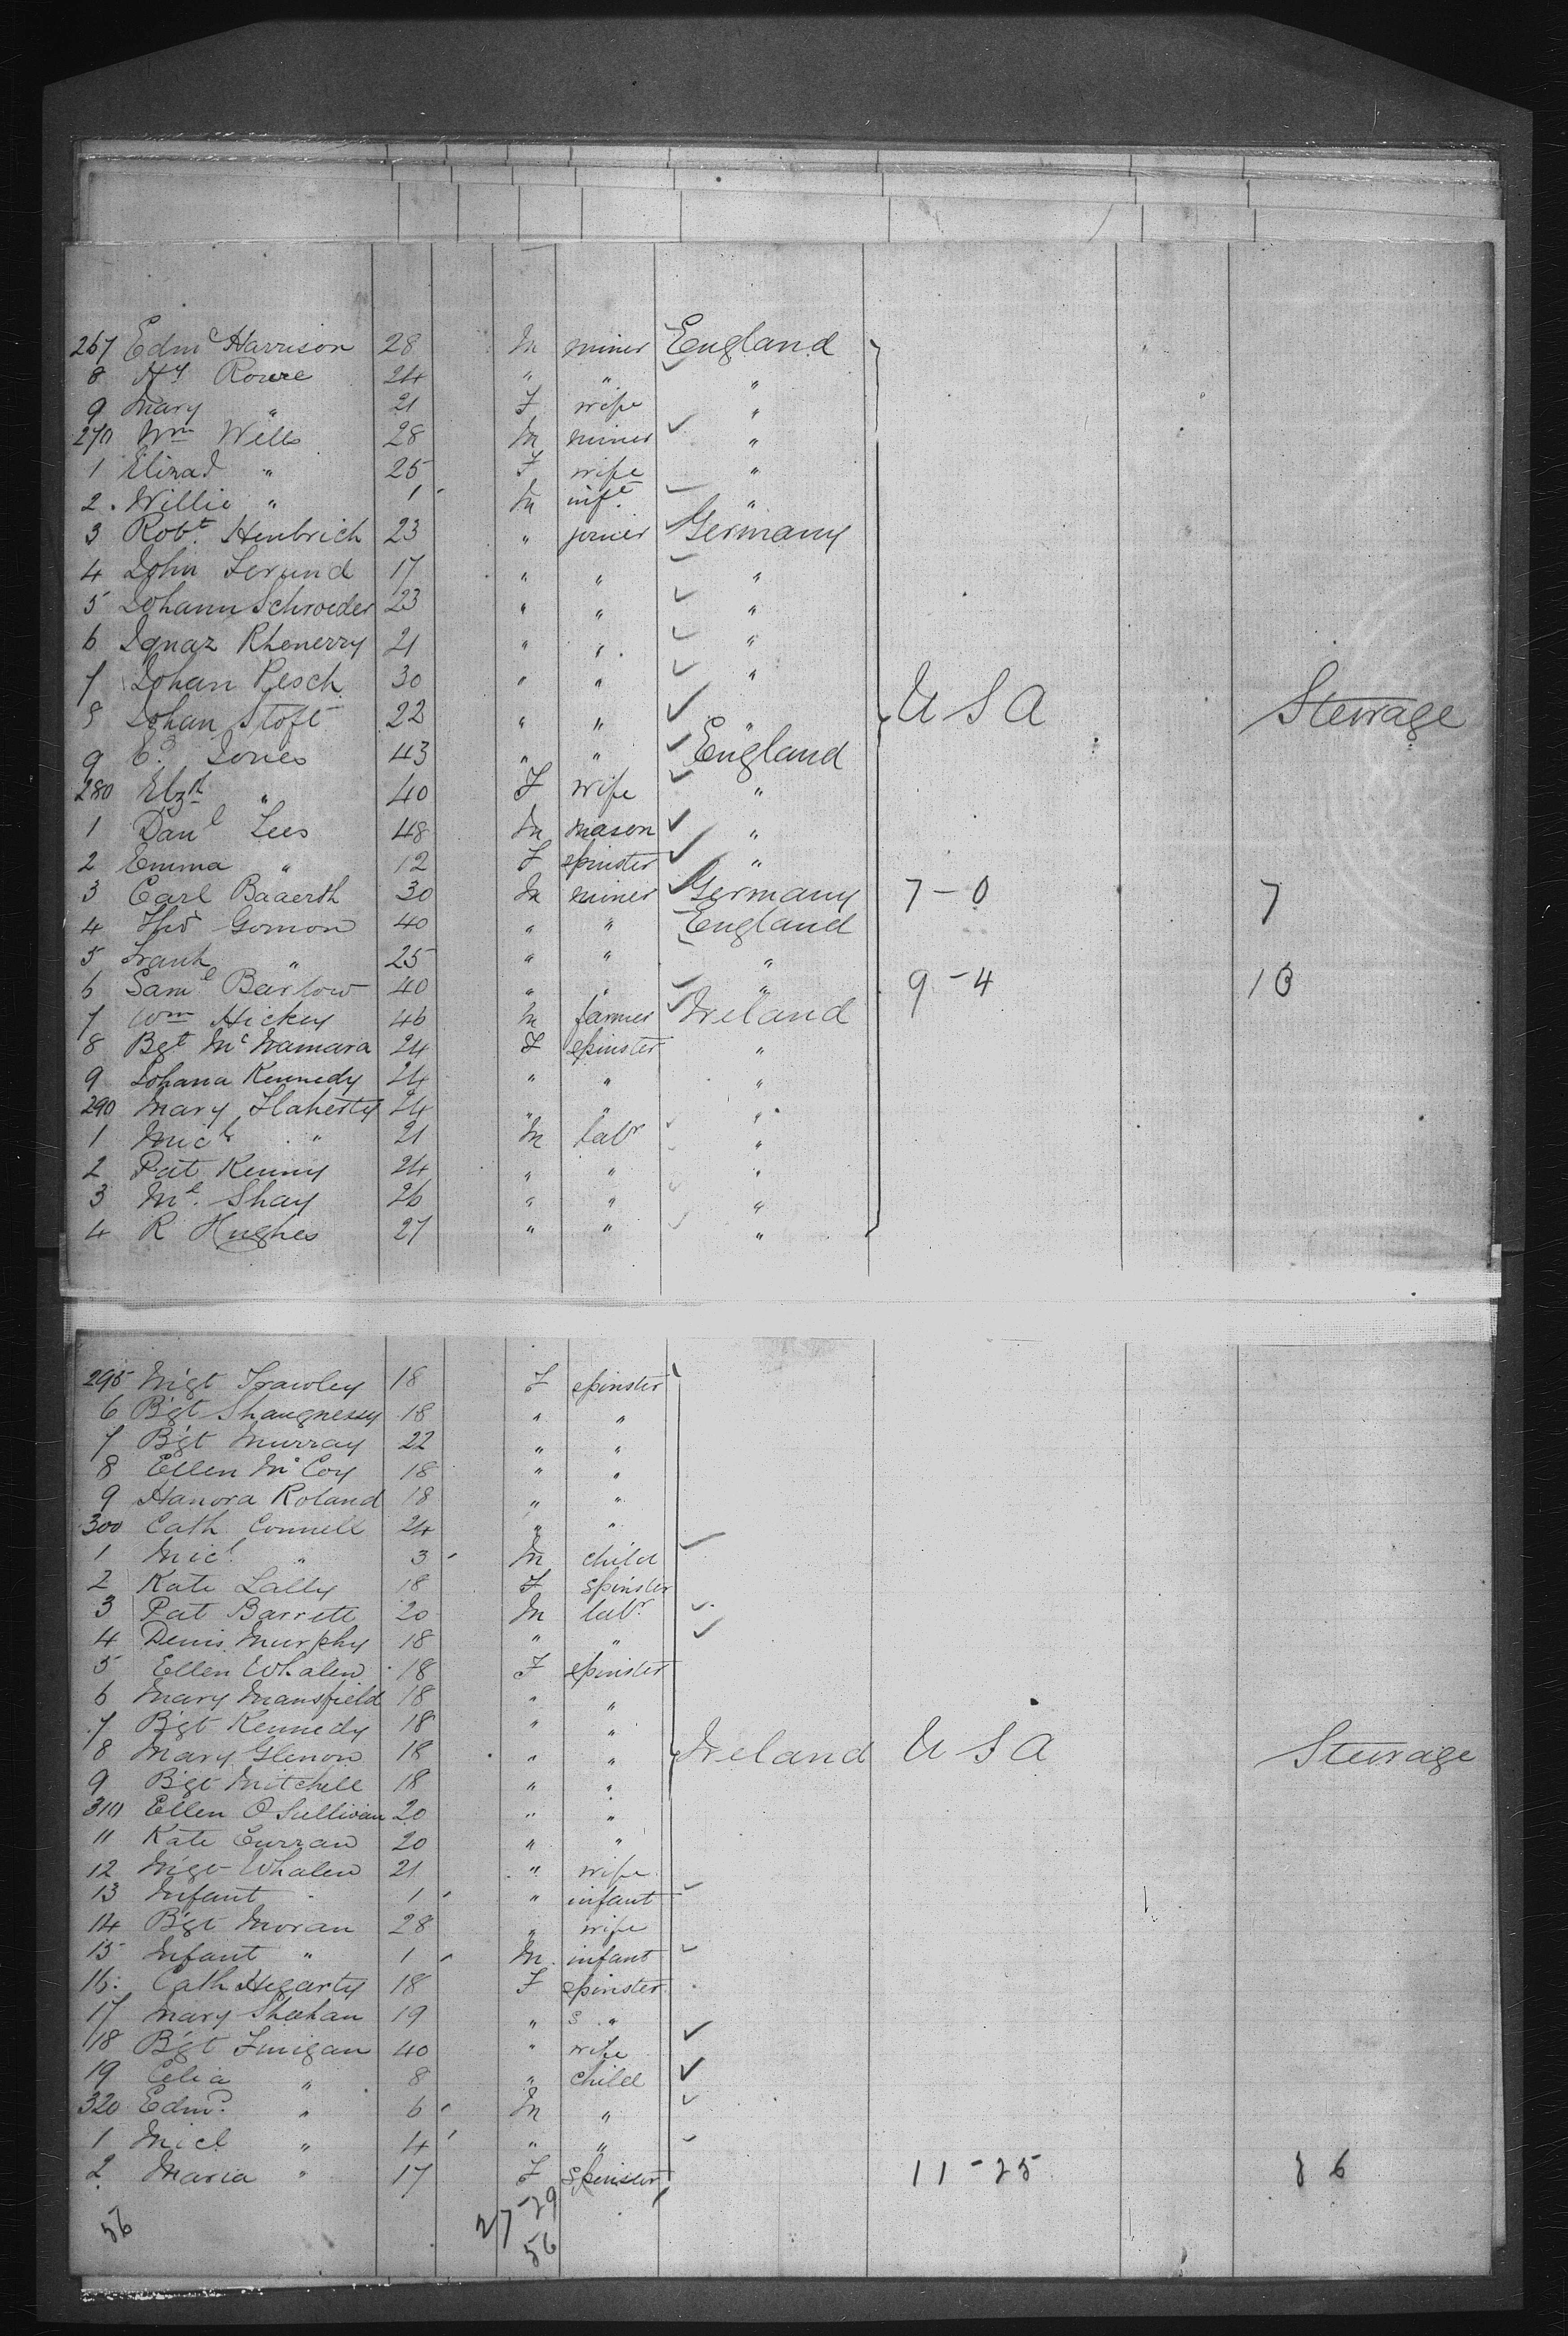 267 Edmd Harrison 28 M miner England
8 Hy Rowe 24 " " "
9 Mary " 21 F wife "
270 Wm Wells 28 M miner "
1 Elizad " 25 F wife "
2 Willie " 1 M inft "
3 Robt. Heubrich 23 " joiner Germany
4 John Serund 17 " " "
5 Johann Schroeder 23 " " "
6 Ignaz Rhenerry 21 " " "
7 Johan Pesch 30 " " "
8 Johan Stoft 22 " " " U S A Steerage
9 Ed. Jones 43 " " England
280 Elzh " 40 F wife "
1 Danl Lees 48 M mason "
2 Emma " 12 F spinster "
3 Carl Baaerth 30 M miner Germany 7 - 0 7
4 Thos Gomon 40 " " England
5 Frank " 25 " " "
6 Saml. Barlow 40 " " " 9 - 4 10
7 Wm Hickey 46 M farmer Ireland
8 Bgt McNamara 24 F spinster "
9 Johana Kennedy 24 " " "
290 Mary Flaherty 24 " " "
1 Mich " 21 M labr "
2 Pat Kenny 24 " " "
3 Ml. Shay 26 " " "
4 R Hughes 27 " " "
295 Mgt Frawley 18 F spinster
6 Bgt Shaugnessy 18 " "
7 Bgt Murray 22 " "
8 Ellen McCoy 18 " "
9 Hanora Roland 18 " "
300 Cath Connell 24 " "
1 Micl. " 3 M child
2 Kate Lally 18 F spinster
3 Pat Barrett 20 M labr
4 Denis Murphy 18 " "
5 Ellen Whalen 18 F spinster
6 Mary Mansfield 18 " "
7 Bgt Kennedy 18 " "
8 Mary Glenon 18 " " Ireland U S A Steerage
9 Bgt Mitchell 18 " "
310 Ellen O Sullivan 20 " "
11 Kate Curran 20 " "
12 Mgt Whalen 21 " wife
13 Infant " 1 " infant
14 Bgt Moran 28 " wife
15 Infant " 1 M infant
16 Cath Hegarty 18 F spinster
17 Mary Sheehan 19 " s "
18 Bgt Finigan 40 " wife
19 Celia " 8 " child
320 Edmd. " 6 M "
1 Micl " 4 " "
2 Maria " 17 F spinster 11 - 25 36
56 27 - 29
56